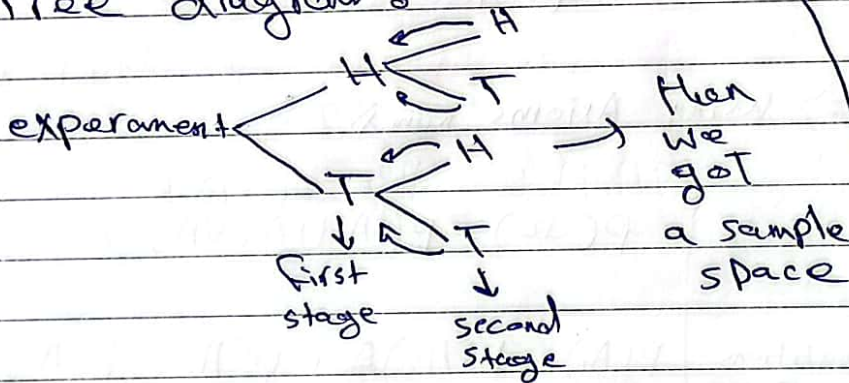 Tree diagrams
H
H
T
experament
then
we
got
a sample
space
H
T
T
first
stage
second
stage